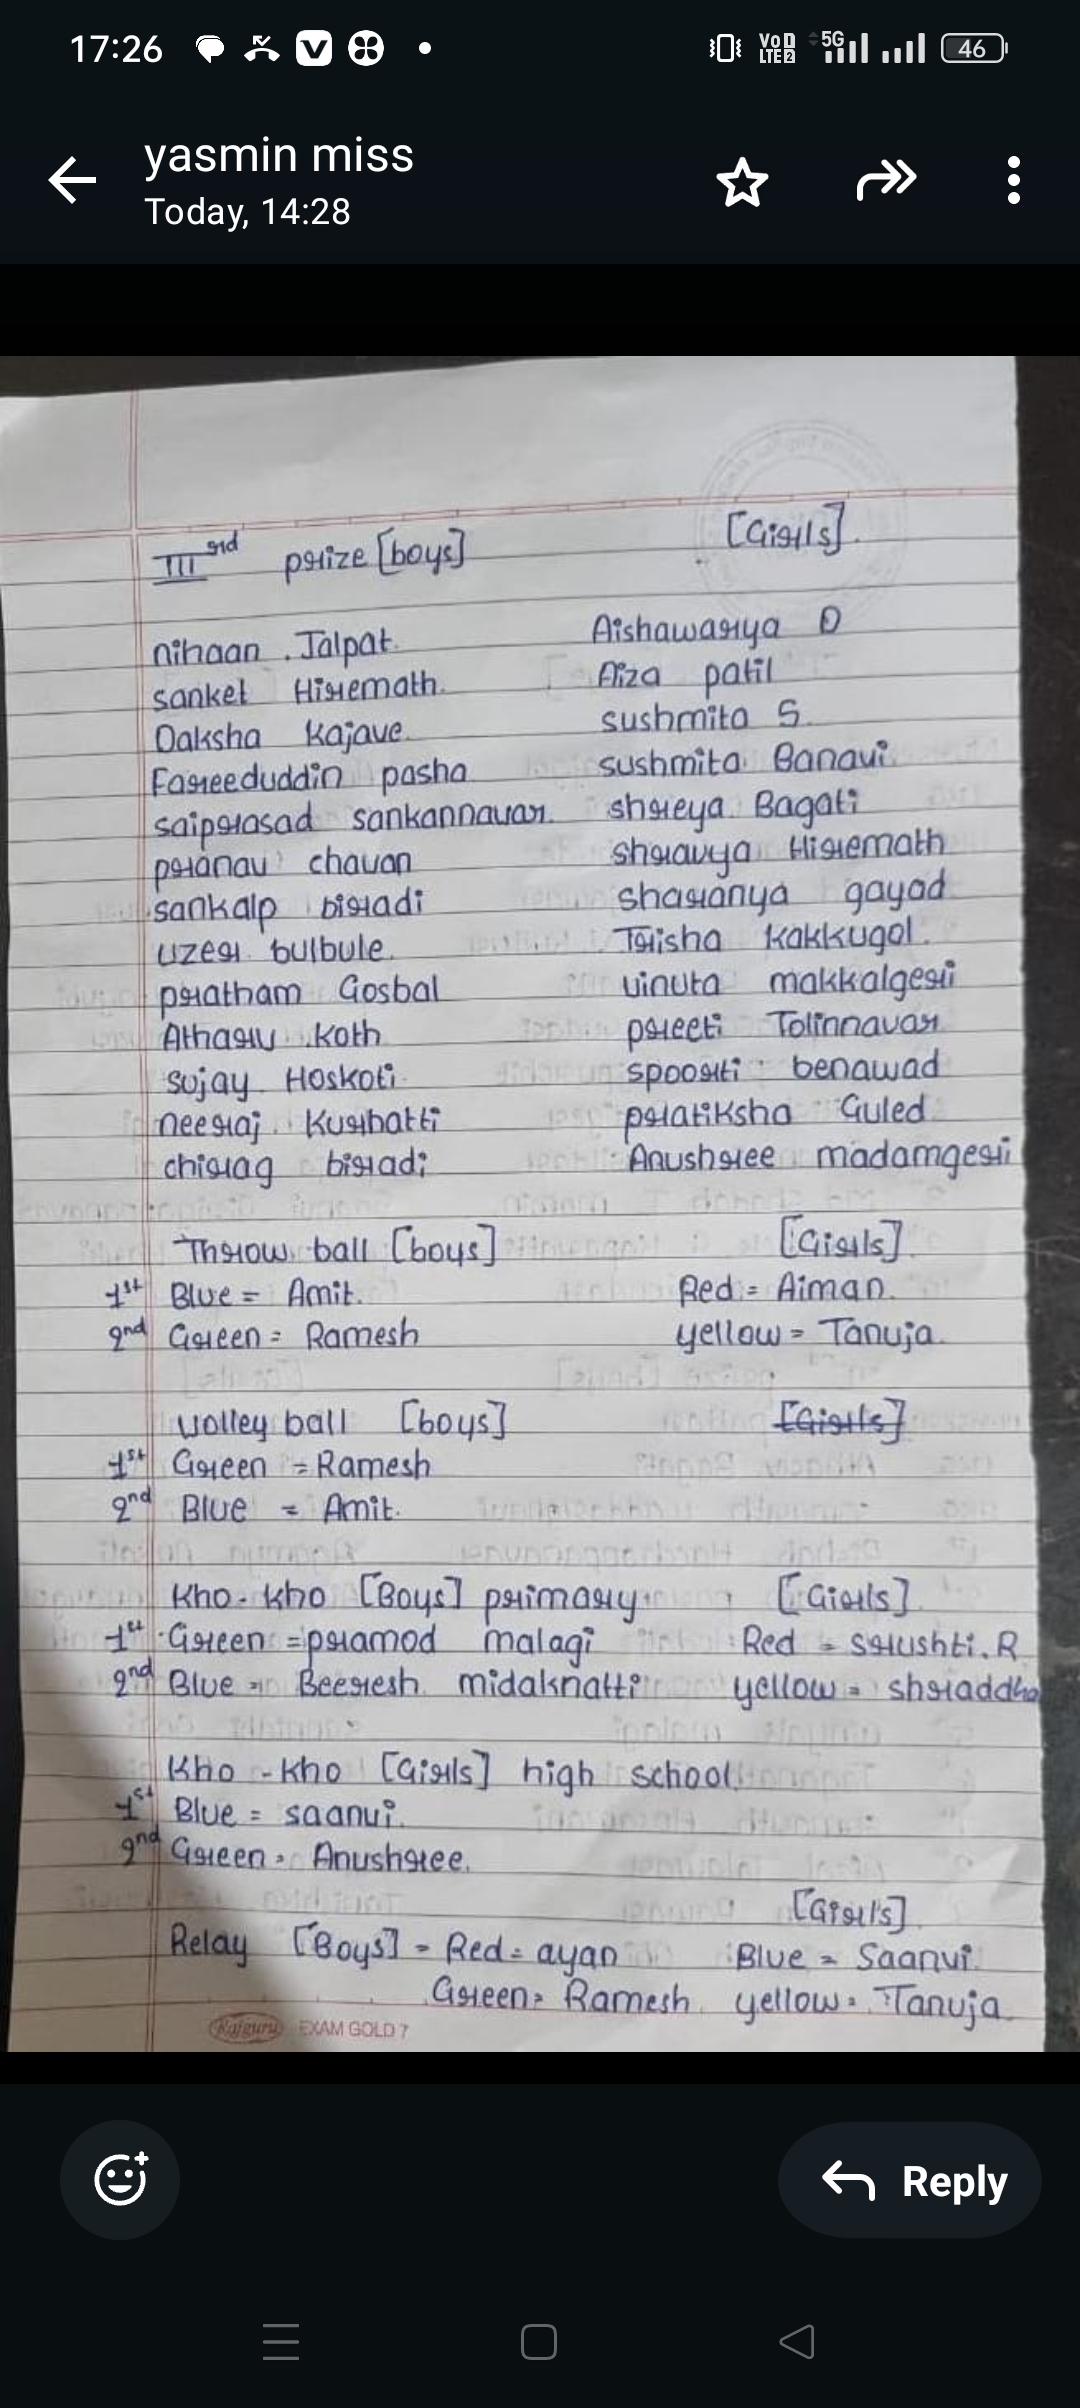 17:26 46
yasmin miss
Today, 14:28
IIIrd prize [boys] [Girls].
nihaan . Jalpat. Aishawarya D
sanket Hiremath. Aiza patil
Daksha Kajave. sushmita S.
Fareeduddin pasha sushmita Banavi.
saiprasad sankannavar. shreya Bagati
pranav chavan shravya Hiremath
sankalp biradi sharanya gayad
uzer bulbule. Trisha kakkugol.
pratham Gosbal vinuta makkalgeri
Atharv koth preeti Tolinnavar
sujay Hoskoti. spoorti benawad
neeraj Kurhatti pratiksha Guled
chirag biradi Anushree madamgeri
Throw ball [boys] [Girls].
1st Blue = Amit. Red = Aiman.
2nd Green = Ramesh yellow = Tanuja.
volley ball [boys] [Girls]
1st Green = Ramesh
2nd Blue = Amit.
Kho-kho [Boys] primary [Girls].
1st Green = pramod malagi Red = srushti.R
2nd Blue = Beeresh midaknatti yellow = shraddha
Kho-kho [Girls] high school.
1st Blue = saanvi.
2nd Green = Anushree.
[Girls].
Relay [Boys] = Red = ayan Blue = Saanvi.
Green = Ramesh yellow = Tanuja.
Rajguru EXAM GOLD 7
Reply